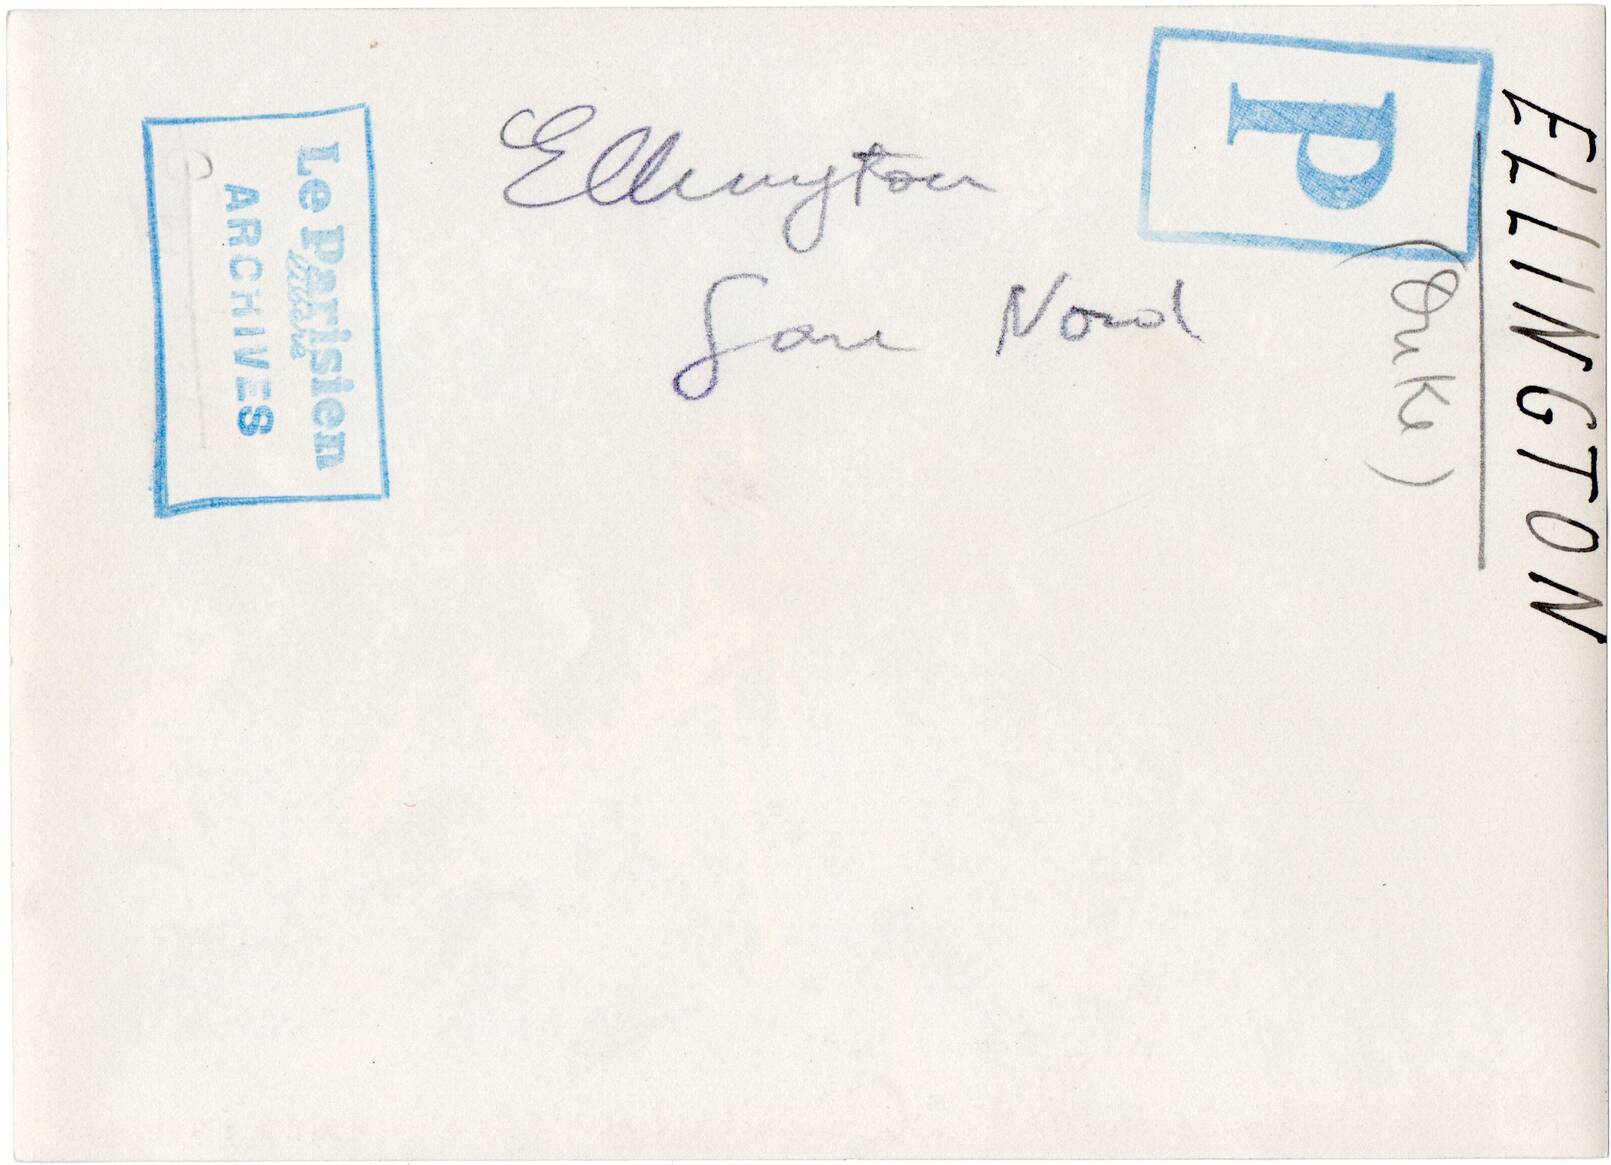 Ellington
Gare Nord
P
ELLINGTON
(Duke)
Le Parisien
libéré
ARCHIVES